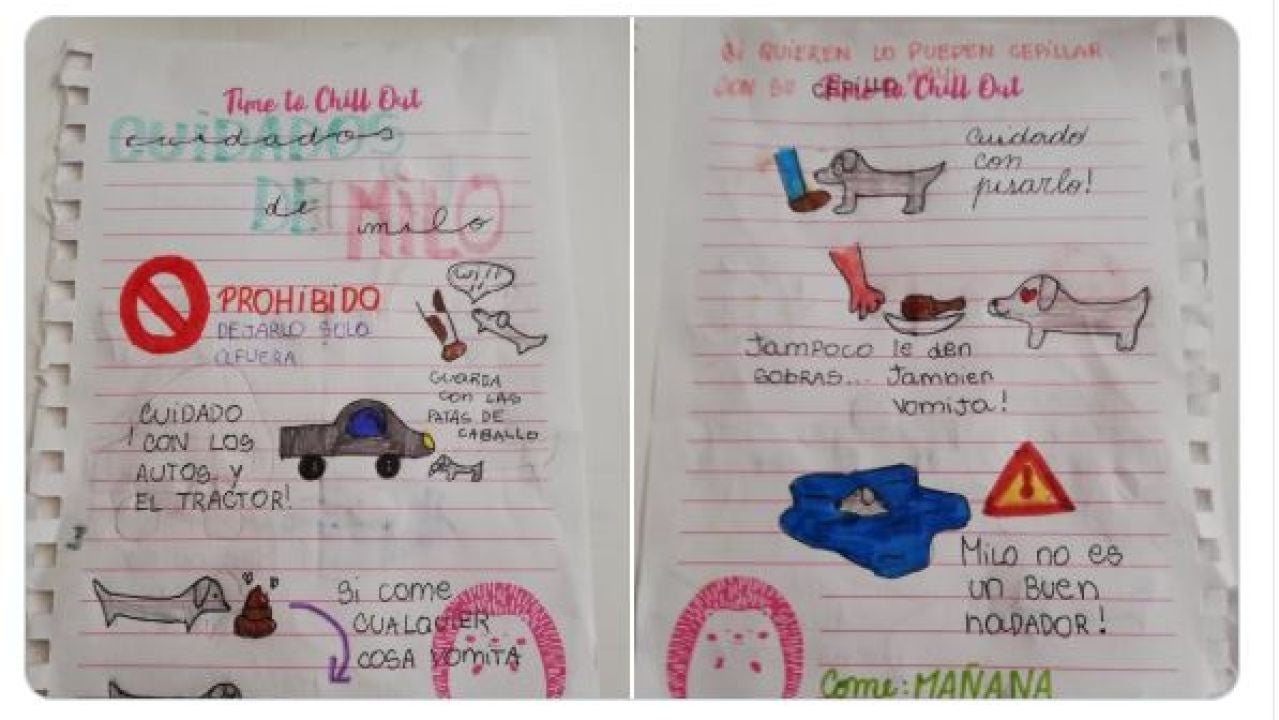 Time to Chill Out
CUIDADOS
cuidados
DE MILO
de milo
PROHIBIDO
DEJARLO SOLO
AFUERA
Wi!!
GUARDA
CON LAS
PATAS DE
CABALLO
CUIDADO
¡CON LOS
AUTOS Y
EL TRACTOR!
Si come
CUALQUIER
COSA VOMITA
Si QUIEREN LO PUEDEN CEPILLAR
CON SU CEPILLO
Time to Chill Out
Cuidado
con
pisarlo!
TAMPOCO le den
SOBRAS... Tambien
Vomita!
Milo no es
un Buen
nadador!
Come: MAÑANA